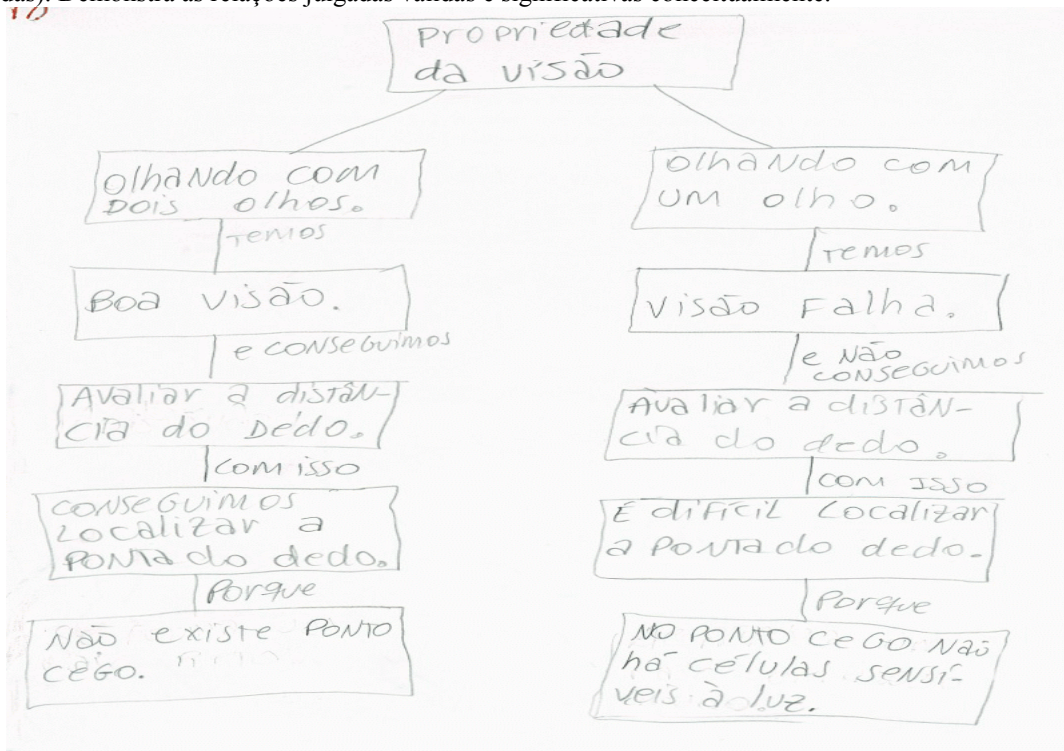 das). Demonstra as relações julgadas válidas e significativas conceitualmente.
Propriedade
da visão
Olhando com
dois olhos.
Temos
Boa visão.
e conseguimos
Avaliar a distân-
cia do dedo.
com isso
Conseguimos
Localizar a
Ponta do dedo.
Porque
Não existe Ponto
cego.
Olhando com
um olho.
Temos
Visão Falha.
e não
conseguimos
Avaliar a distân-
cia do dedo.
com isso
É difícil Localizar
a Ponta do dedo.
Porque
No Ponto cego não
há células sensí-
veis à luz.